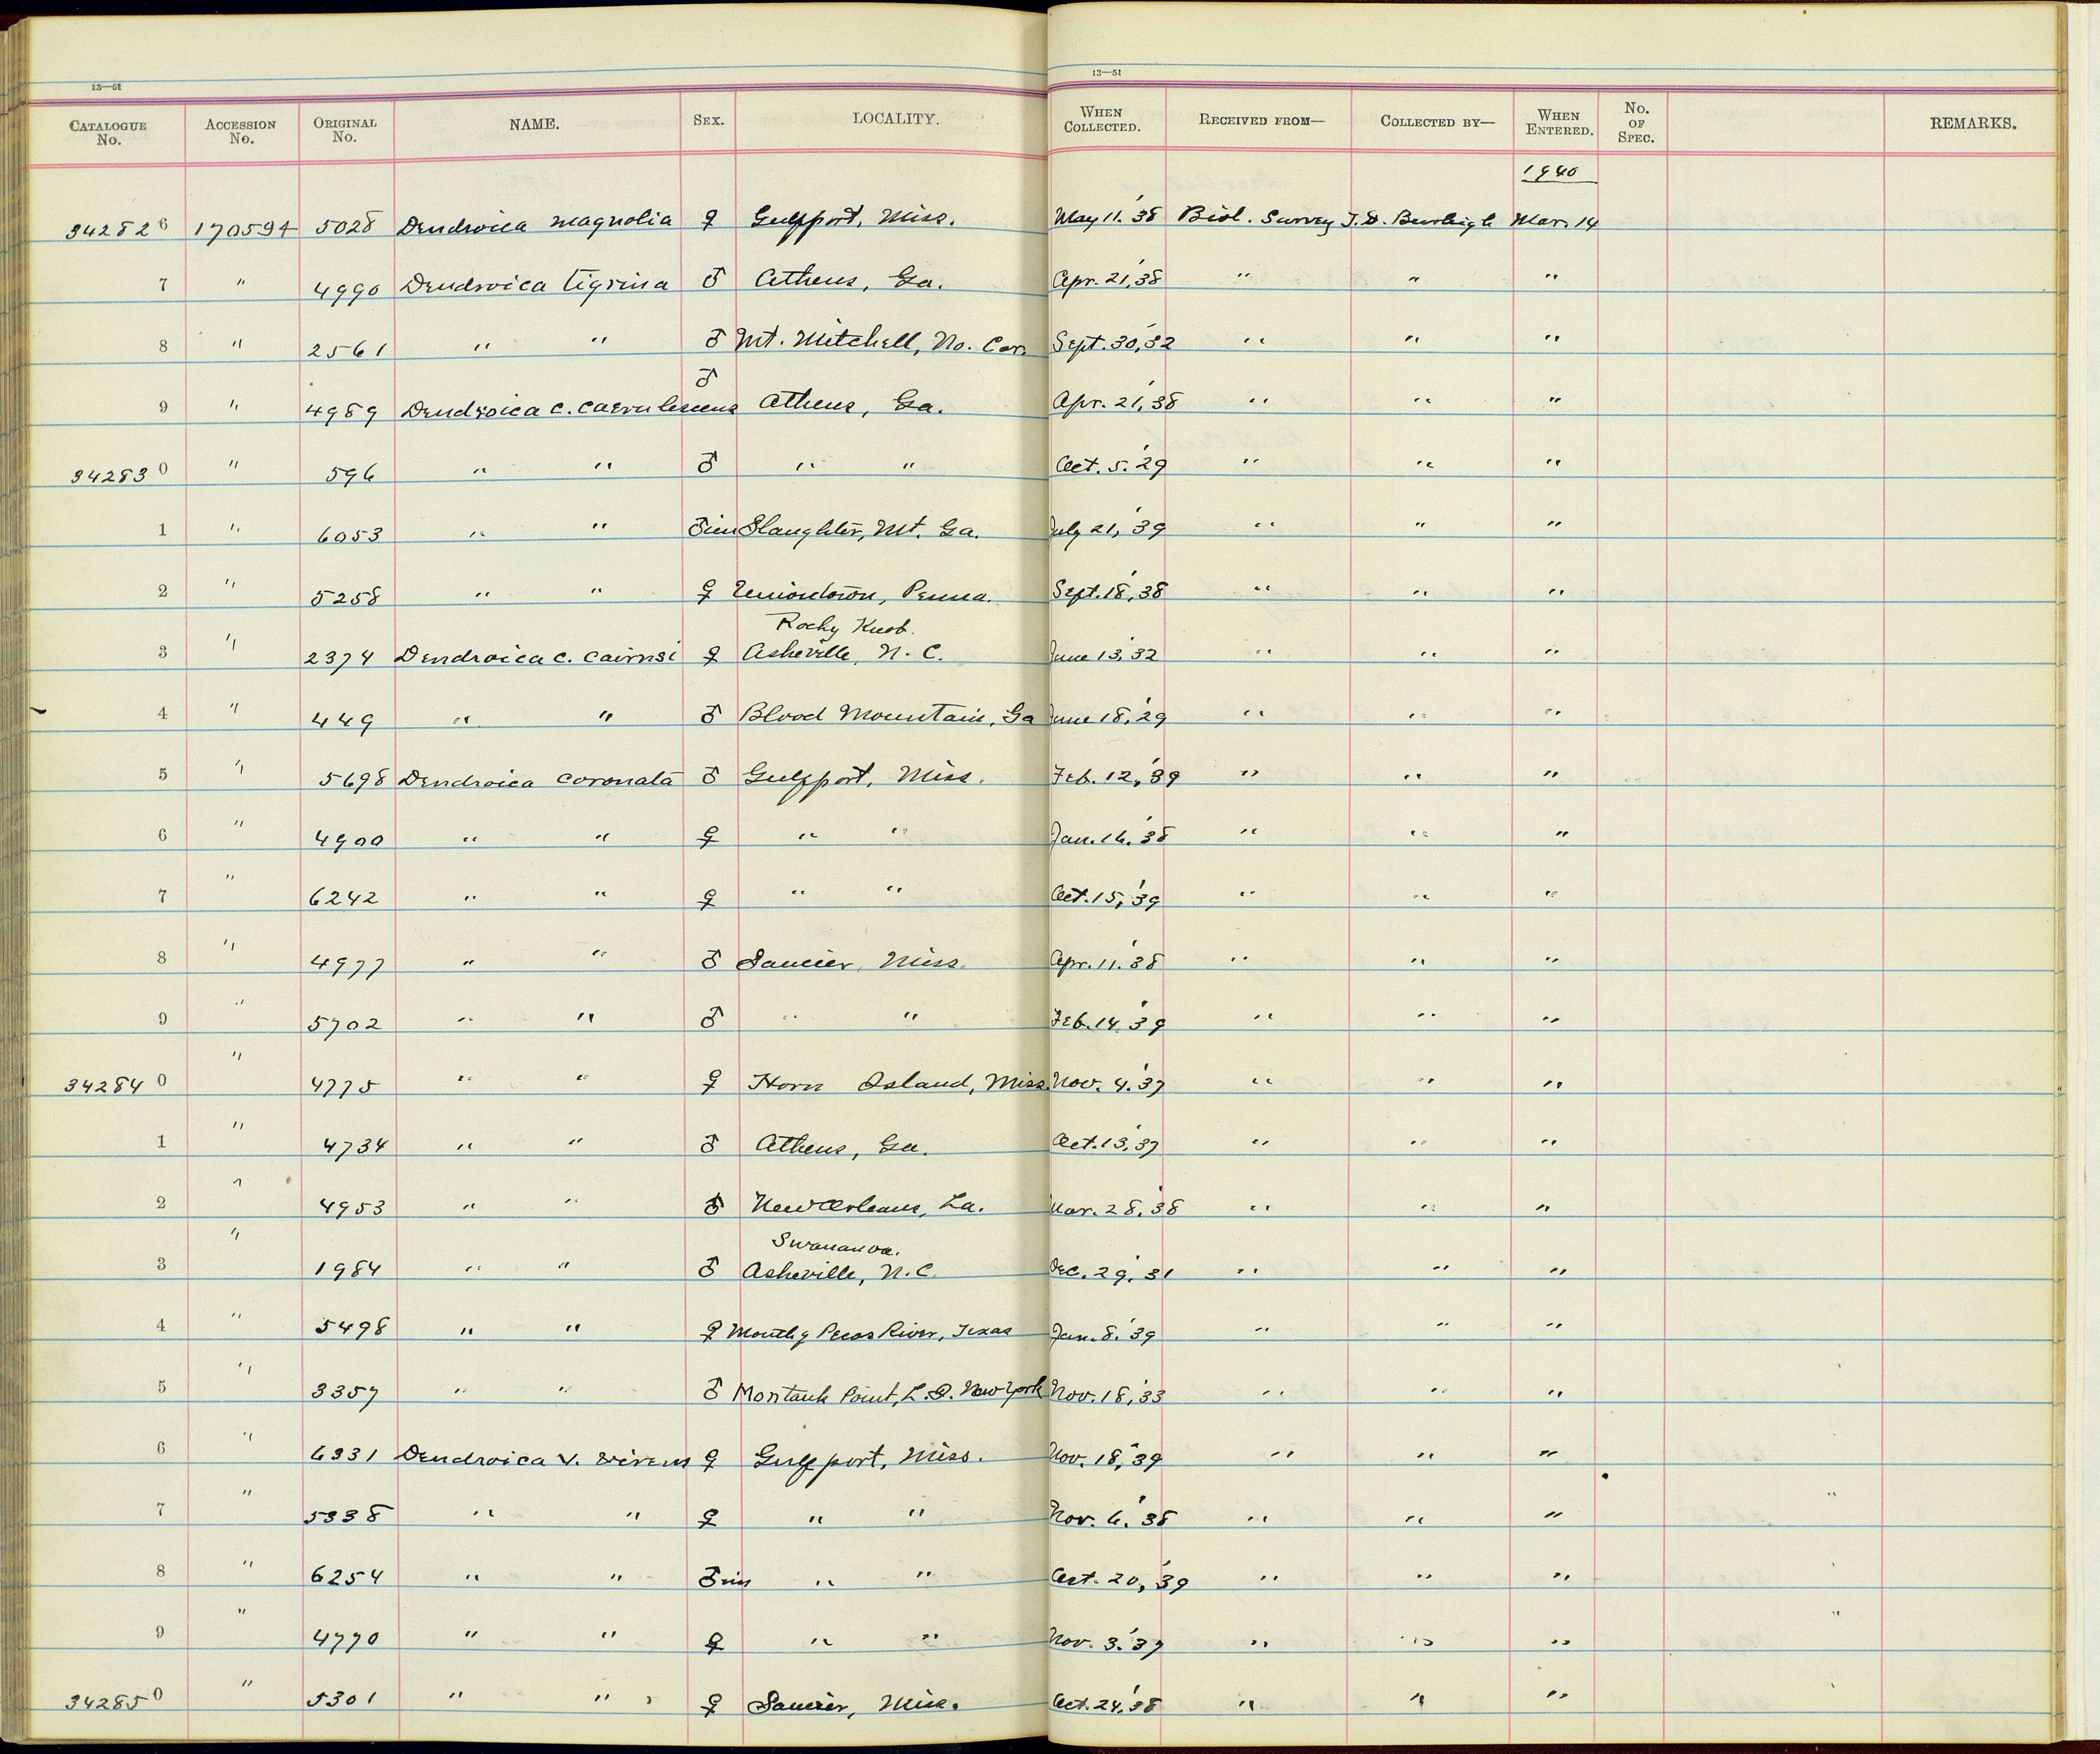 13—51 13—51
CATALOGUE No. ACCESSION No. ORIGINAL No. NAME. SEX. LOCALITY. WHEN COLLECTED. RECEIVED FROM— COLLECTED BY— WHEN ENTERED. No. OF SPEC. REMARKS.
1940
342826 170594 5028 Dendroica magnolia ♀ Gulfport, Miss. May 11.'38 Biol. Survey T.D. Burleigh Mar. 14
7 " 4990 Dendroica tigrina ♂ Athens, Ga. Apr. 21,'38 " " "
8 " 2561 " " ♂ Mt. Mitchell, No. Car. Sept. 30,'32 " " "
9 " 4989 Dendroica c. caerulescens ♂ Athens, Ga. Apr. 21,'38 " " "
342830 " 596 " " ♂ " " Oct. 5.'29 " " "
1 " 6053 " " ♂im Slaughter, Mt. Ga. July 21,'39 " " "
2 " 5258 " " ♀ Uniontown, Penna. Sept. 18,'38 " " "
Rocky Knob.
3 " 2374 Dendroica c. cairnsi ♀ Asheville, N.C. June 13,'32 " " "
4 " 449 " " ♂ Blood Mountain, Ga June 18,'29 " " "
5 " 5698 Dendroica coronata ♂ Gulfport, Miss. Feb. 12,'39 " " "
6 " 4900 " " ♀ " " Jan. 16.'38 " " "
7 " 6242 " " ♀ " " Oct. 15,'39 " " "
8 " 4977 " " ♂ Saucier, Miss. Apr. 11.'38 " " "
9 " 5702 " " ♂ " " Feb. 14.'39 " " "
342840 " 4775 " " ♀ Horn Island, Miss. Nov. 4.'37 " " "
1 " 4734 " " ♂ Athens, Ga. Oct. 13,'37 " " "
2 " 4953 " " ♂ New Orleans, La. Mar. 28,'38 " " "
Swananoa.
3 " 1984 " " ♂ Asheville, N.C. Dec. 29,'31 " " "
4 " 5498 " " ♀ Mouth of Pecos River, Texas Jan. 8.'39 " " "
5 " 3357 " " ♂ Montauk Point, L.I. New York Nov. 18,'33 " " "
6 " 6331 Dendroica v. virens ♀ Gulfport, Miss. Nov. 18,'39 " " "
7 " 5338 " " ♀ " " Nov. 6.'38 " " "
8 " 6254 " " ♂im " " Oct. 20,'39 " " "
9 " 4770 " " ♀ " " Nov. 3.'37 " " "
342850 " 5301 " " ♀ Saucier, Miss. Oct. 24,'38 " " "